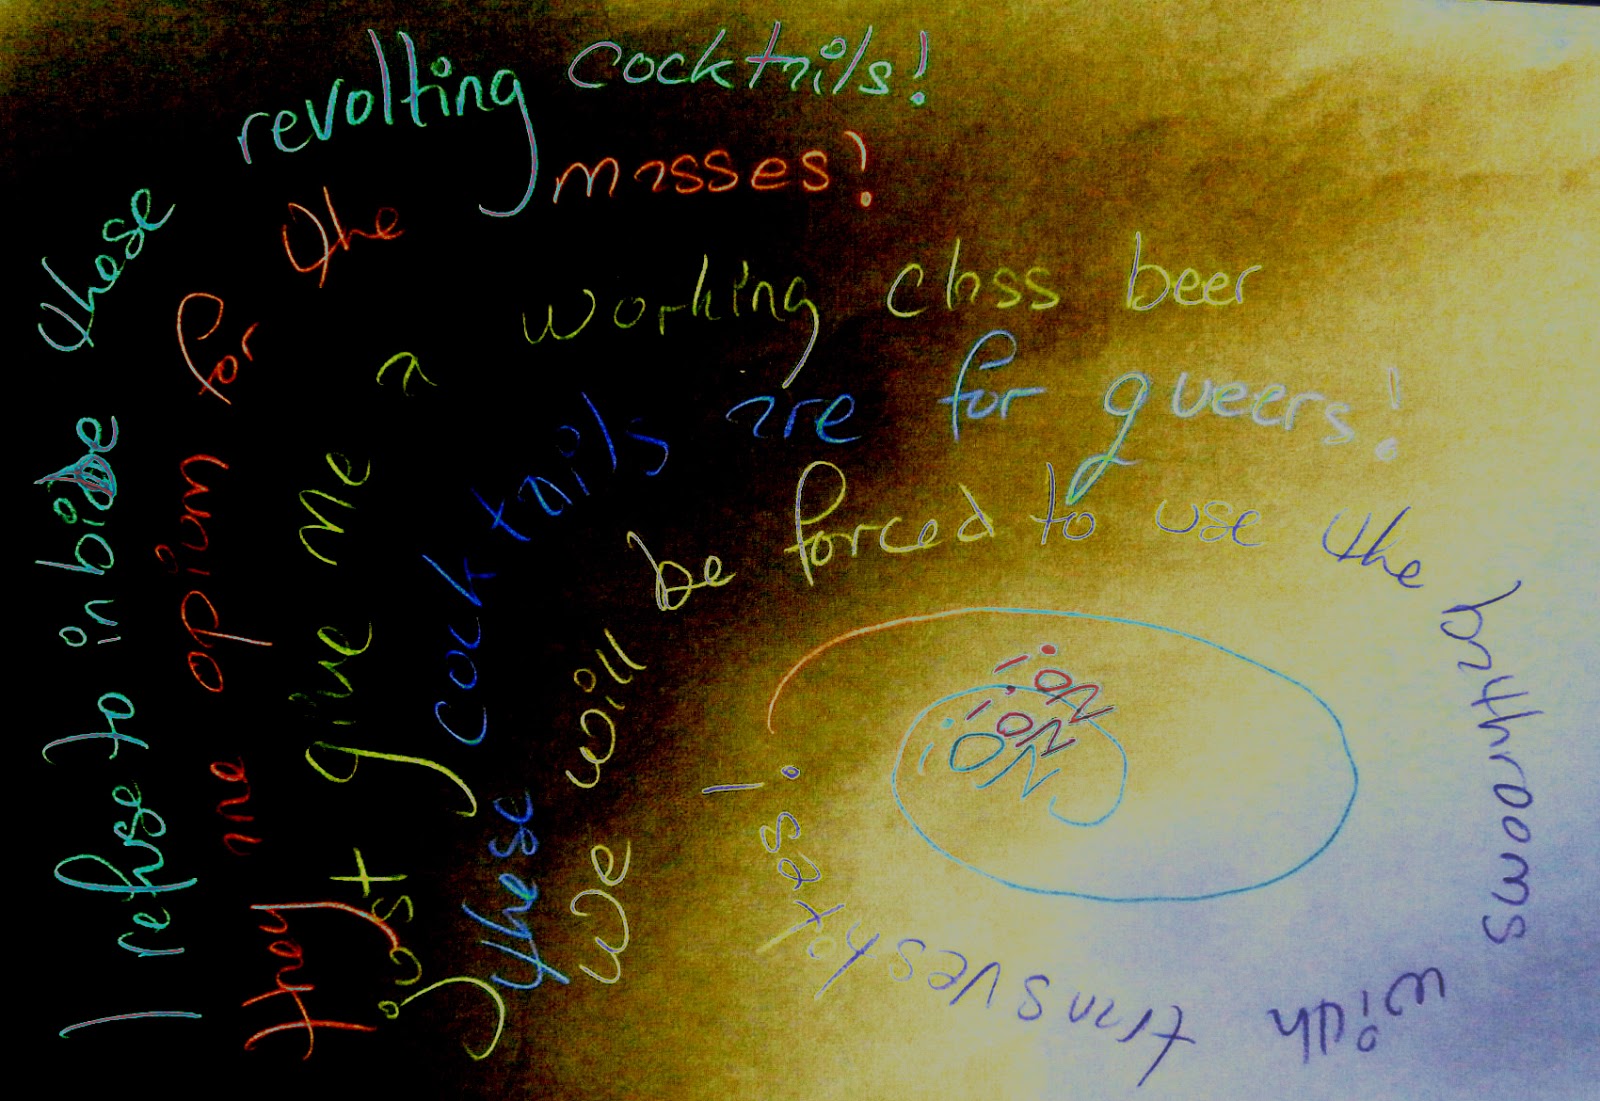 I refuse to inbide these revolting cocktails!
they are opium for the masses!
just give me a working class beer
these cocktails are for queers!
we will be forced to use the bathrooms
with transvestytes!
NO!
NO!
NO!